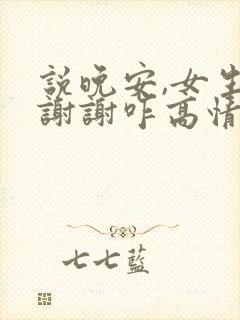 說晚安,女生
謝謝咋高情
七七藍